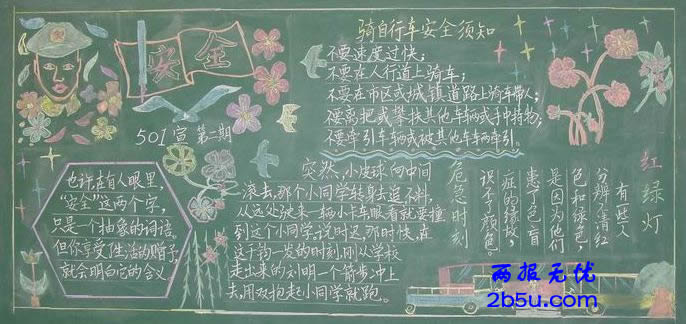 安全
501宣 第二期
骑自行车安全须知
不要速度过快;
不要在人行道上骑车;
不要在市区或城镇道路上骑车带人;
不要离把或攀扶其他车辆或手中持物;
不要牵引车辆或被其他车辆牵引。
也许,在有人眼里,
"安全"这两个字,
只是一个抽象的词语,
但你享受了生活的赠予
就会明白它的含义
危急时刻
突然,小皮球向中间
滚去,那个小同学转身去追,不料,
从远处驶来一辆小卡车眼看就要撞
到这个小同学。说时迟,那时快,在
这千钧一发的时刻,刚从学校
走出来的刘明一个箭步冲上
去,用双抱起小同学就跑。
红绿灯
有些人
分辨不清红
色和绿色,
是因为他们
患了色盲
症的缘故,
误了颜色。
两报无忧
2b5u.com